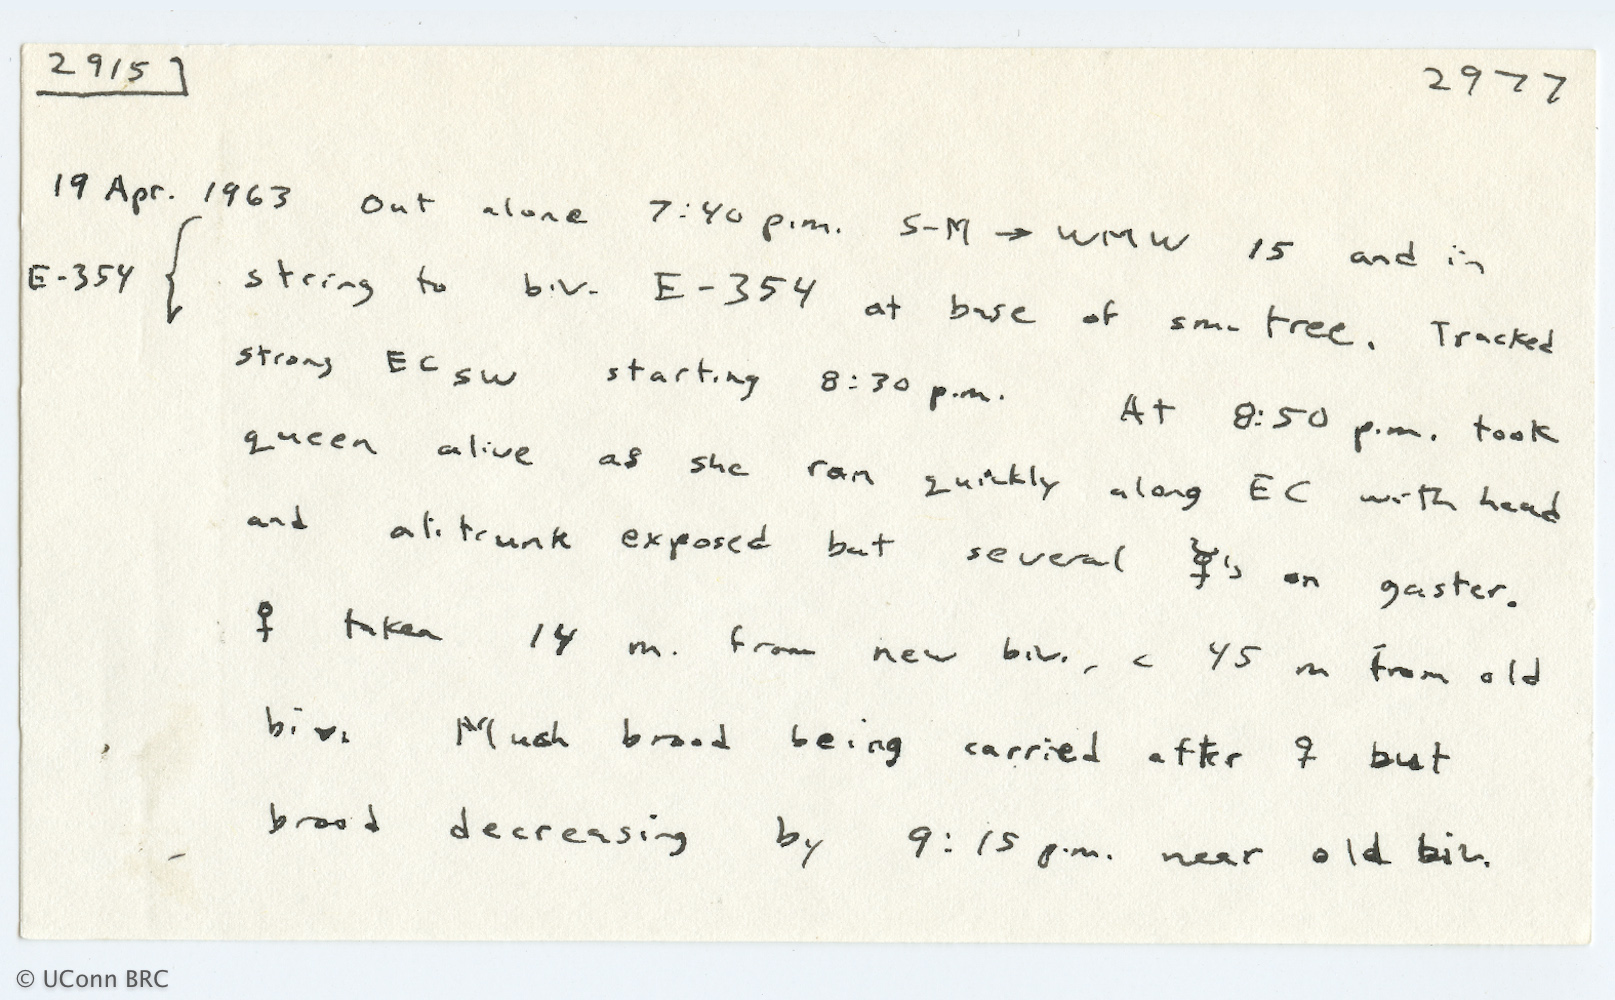 2915]
2977
19 Apr. 1963 Out alone 7:40 p.m. S-M → WMW 15 and in
E-354 { string to biv. E-354 at base of sm. tree. Tracked
strong EC SW starting 8:30 p.m. At 8:50 p.m. took
queen alive as she ran quickly along EC with head
and alitrunk exposed but several ☿'s on gaster.
♀ taken 14 m. from new biv., c 45 m from old
biv. Much brood being carried after ♀ but
brood decreasing by 9:15 p.m. near old biv.
© UConn BRC